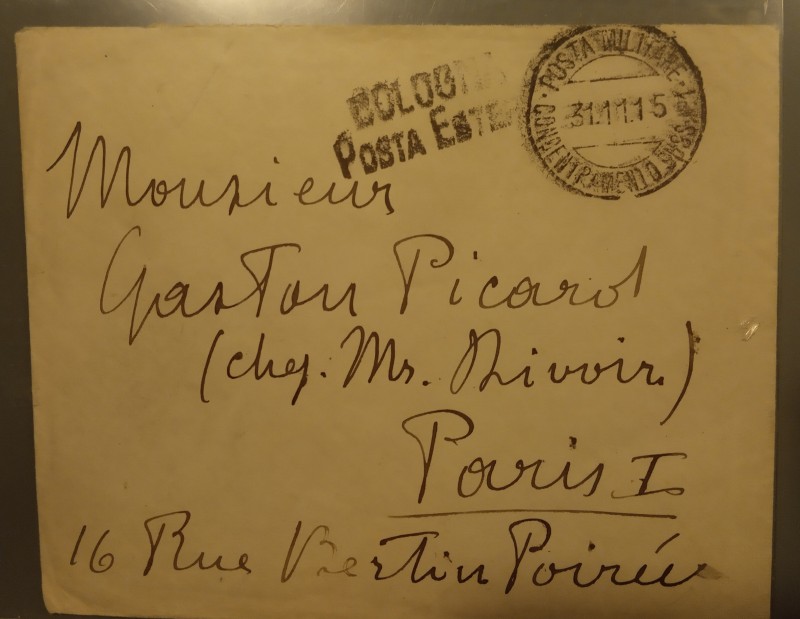 BOLOGNA
POSTA ESTE
POSTA MILITARE
31.11.15
CONCENTRAMENTO
Monsieur
Gaston Picard
(chez. Mr. Rivoir.)
Paris I
16 Rue Bertin Poirée